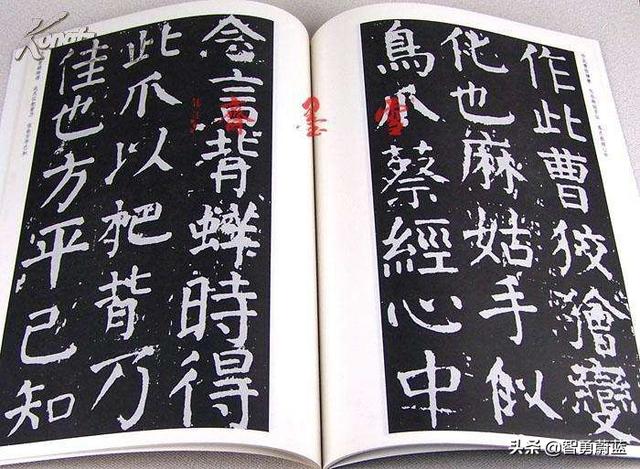 作此曹狡獪變
化也麻姑手似
鳥爪蔡經心中
念言背蛘時得
此爪以把背乃
佳也方平已知
雲墨齋
头条 @智勇蔚蓝